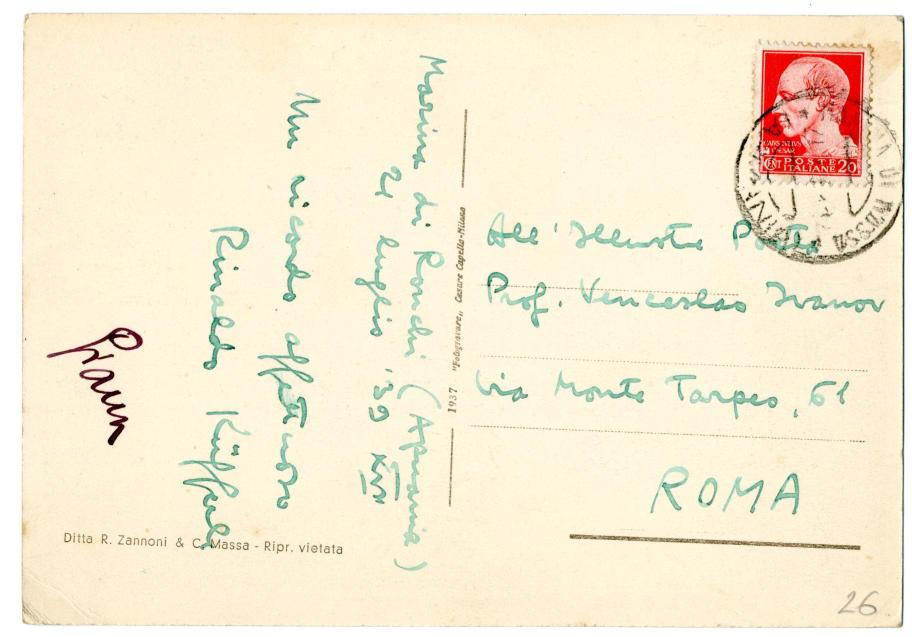 Marina di Ronchi (Apuania)
21 luglio '39 XVII
Un ricordo affettuoso
Rinaldo Küfferle
Ditta R. Zannoni & C. Massa - Ripr. vietata
1937 "Fotogravure" Cesare Capello-Milano
CAIVS IVLIVS
CAESAR
CENT POSTE 20
ITALIANE
MARINA DI MASSA
All'Illustre Poeta
Prof. Venceslao Ivanov
Via Monte Tarpeo, 61
ROMA
26